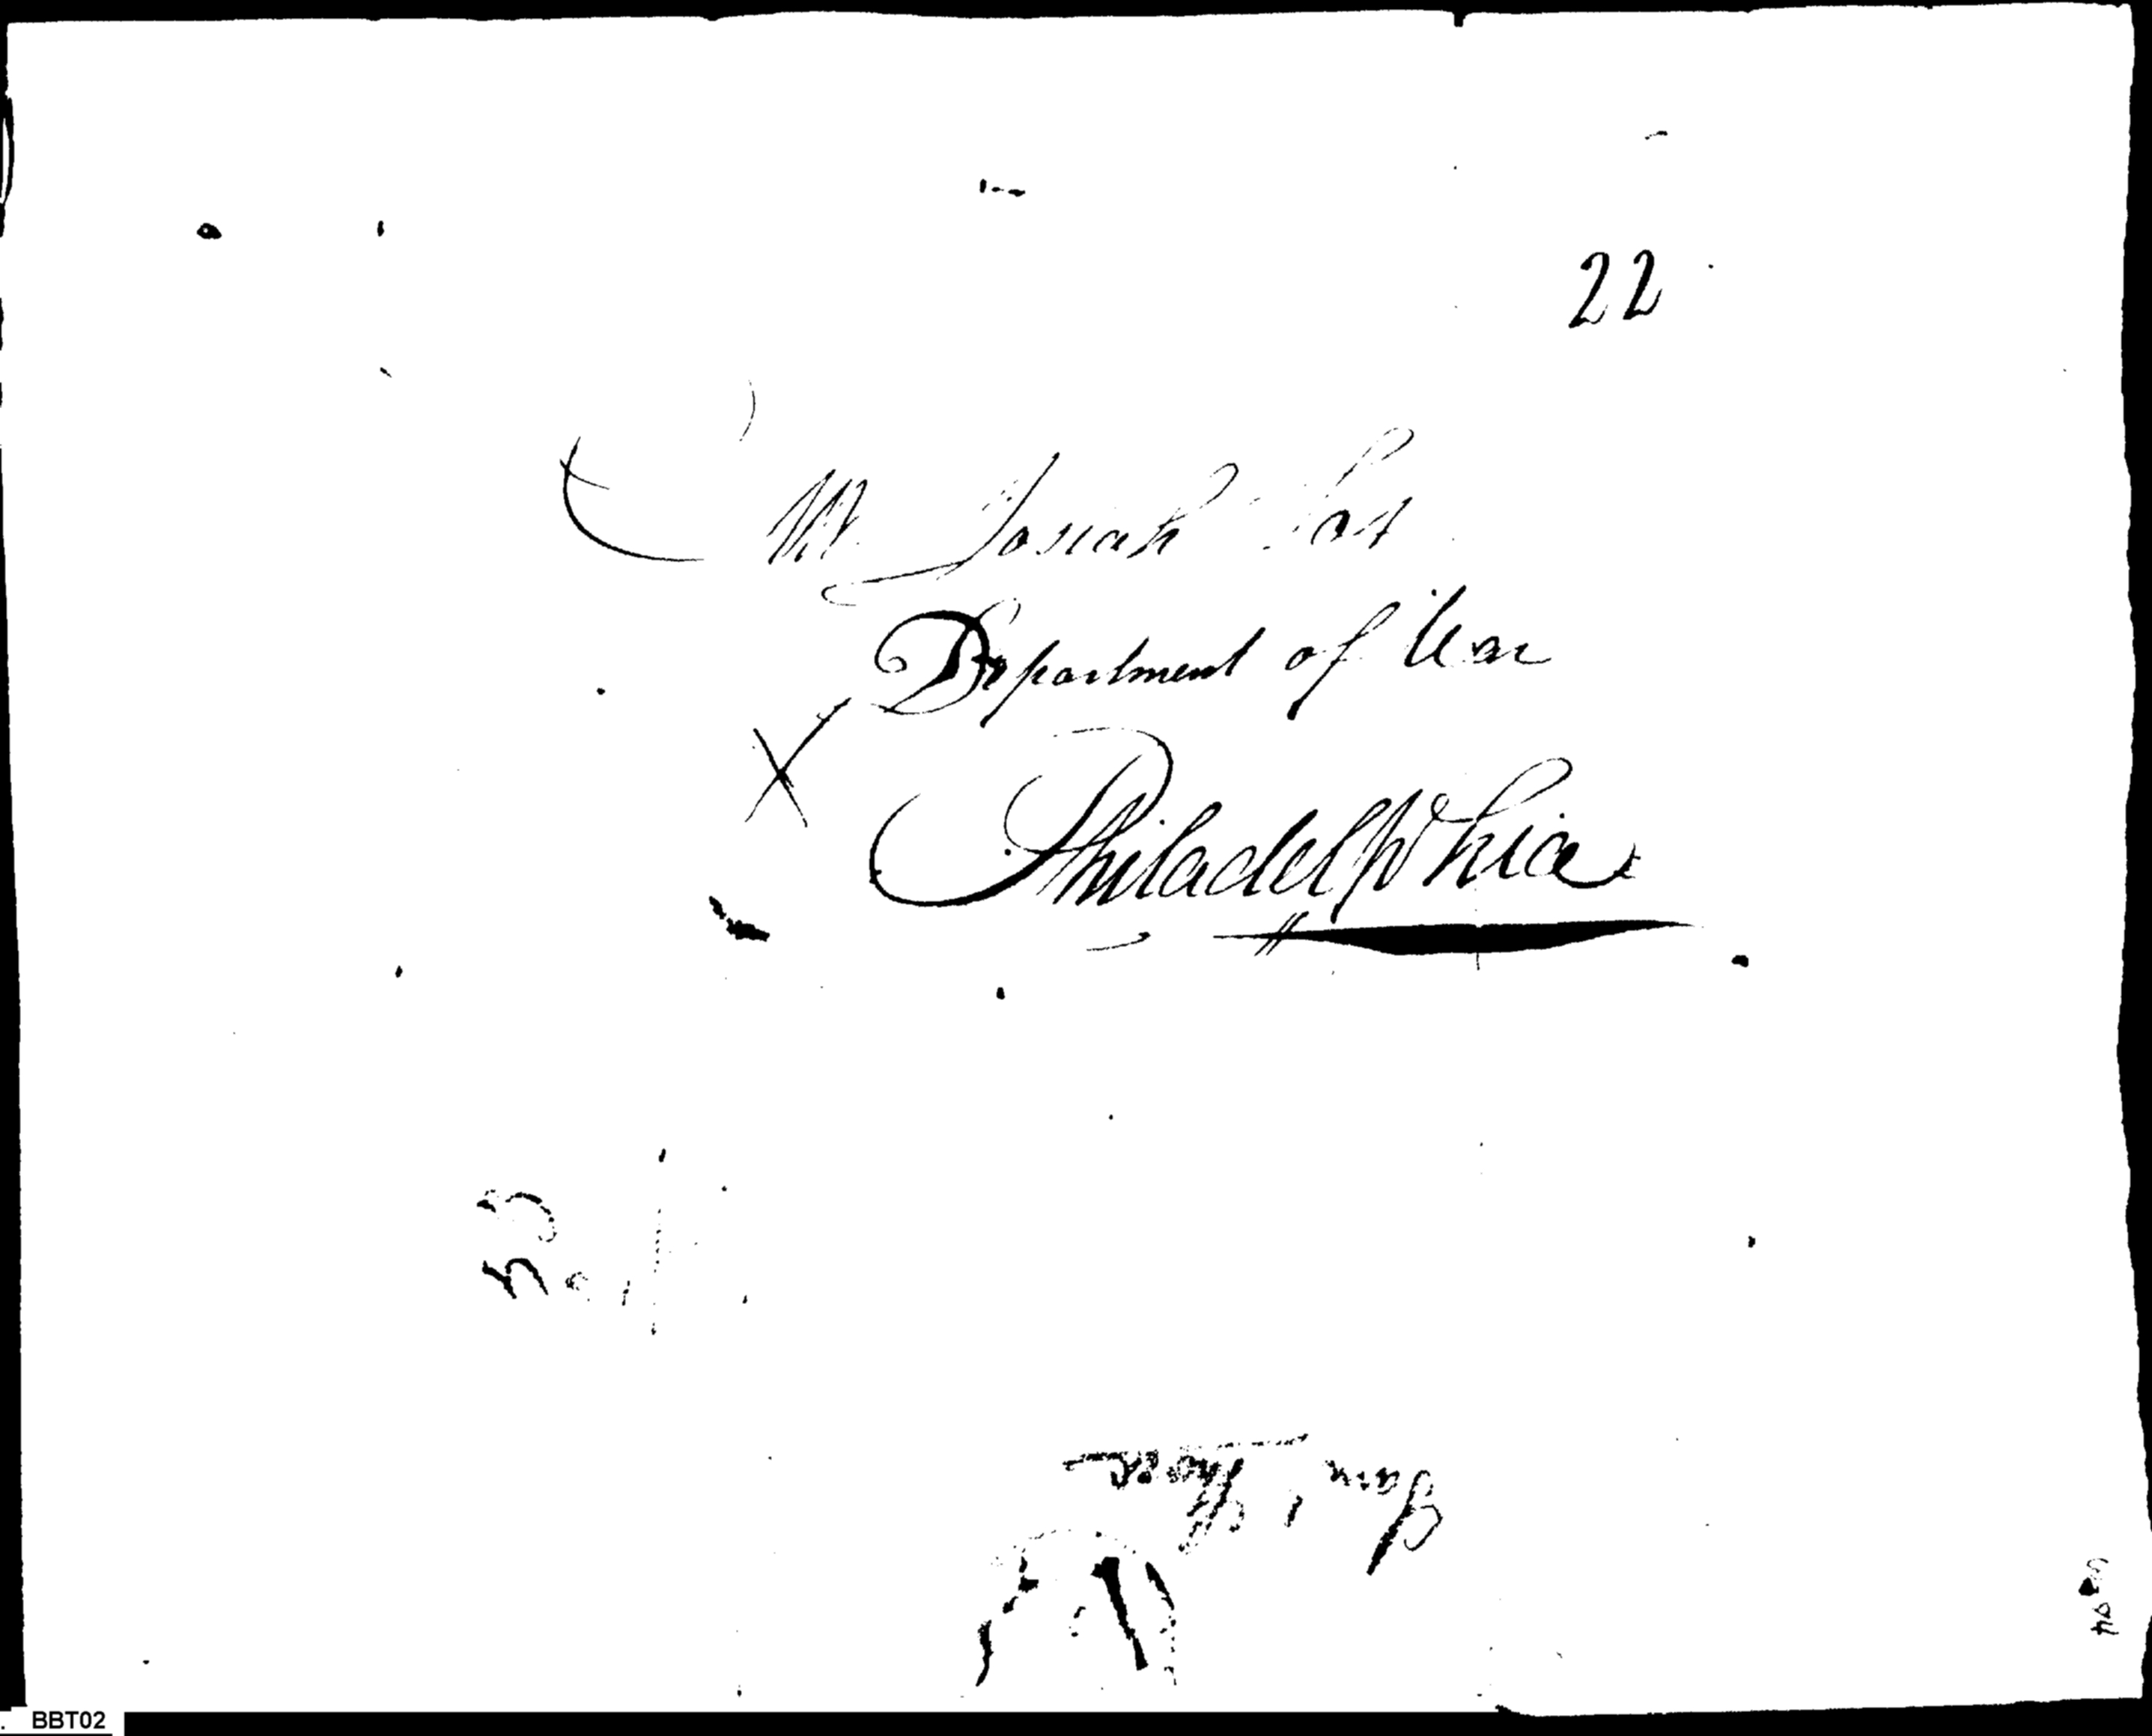 22
Mr. Josiah Fox
Department of War
Philadelphia
BBT02